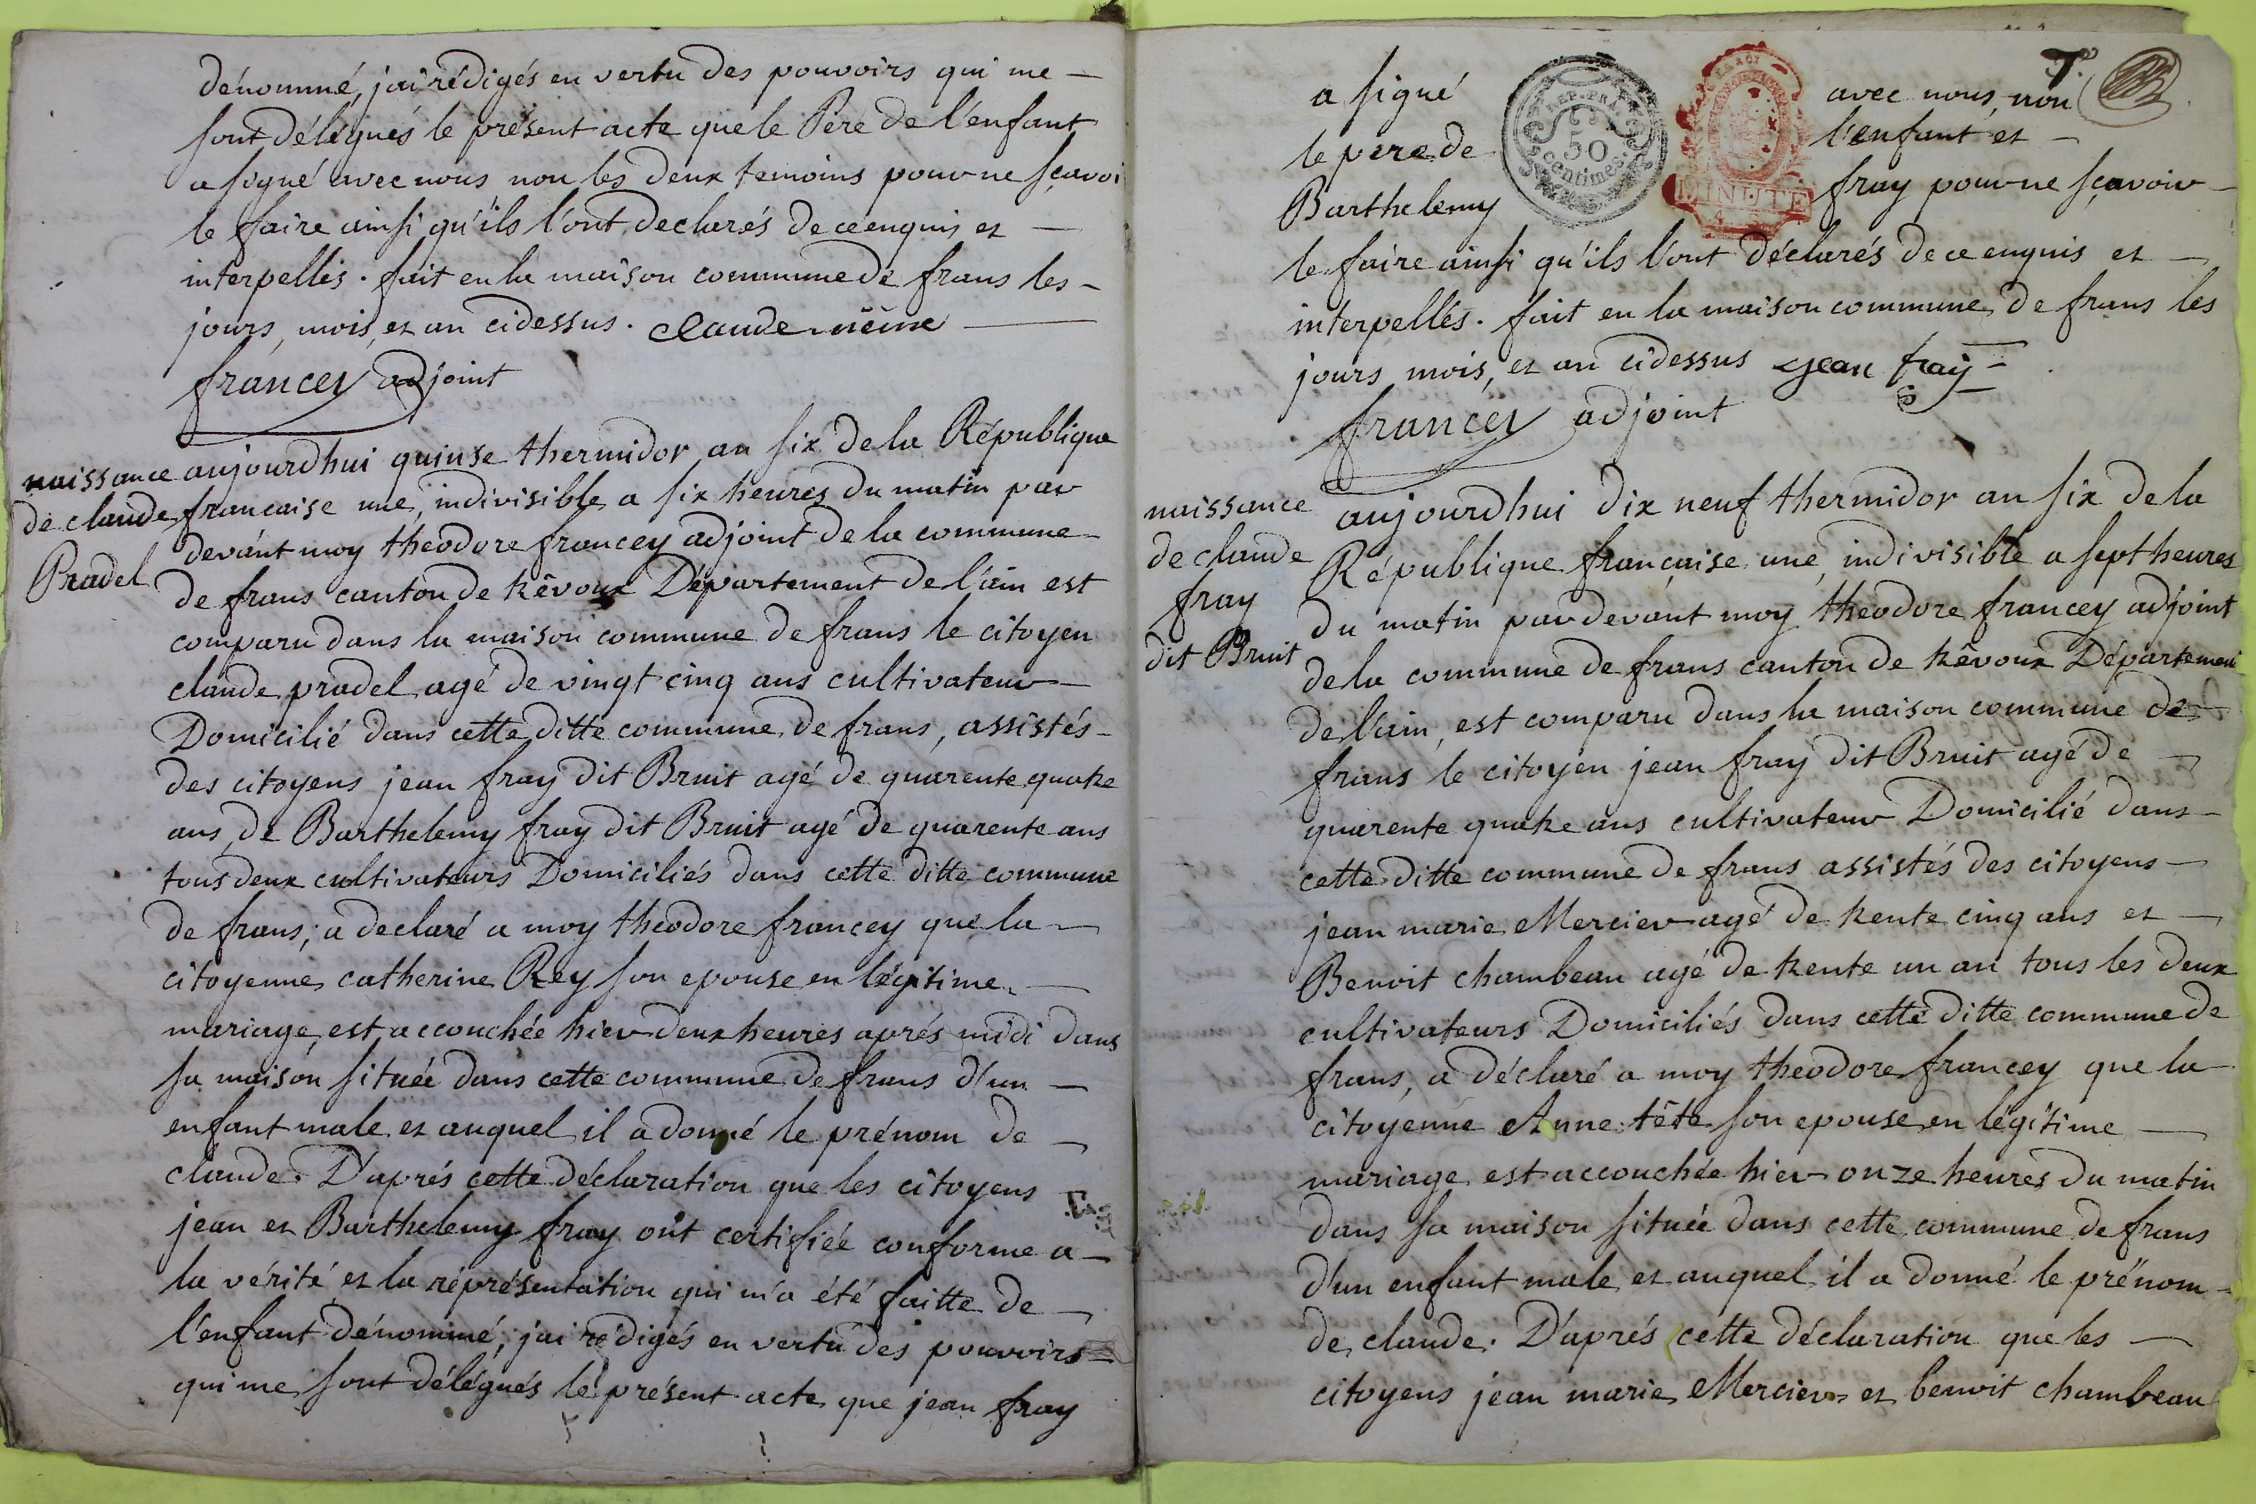 dénommé, jai rédigés en vertu des pouvoirs qui me
sont délégués le présent acte que le Pere de l'enfant
a signé avec nous non les deux temoins pour ne sçavoi
le faire ainsi qu'ils l'ont declarés de ce enquis et
interpellés. fait en la maison commune de frans les
jours, mois, et an cidessus. claude
francey adjoint
naissance
de claude
Pradel
aujourdhui quinse thermidor an six de la République
francaise une, indivisible a six heures du matin par
devant moy theodore francey adjoint de la commune
de frans canton de trêvoux Département de l'ain est
comparu dans la maison commune de frans le citoyen
claude pradel agé de vingt cinq ans cultivateur
Domicilié dans cette ditte commune de frans, assistés
des citoyens jean fray dit Bruit agé de quarente quatre
ans, de Barthelemy fray dit Bruit agé de quarente ans
tous deux cultivateurs Domiciliés dans cette ditte commune
de frans; a declaré a moy theodore francey que la
citoyenne catherine Rey son epouse en légitime
mariage, est accouchée hier deux heures aprés midi dans
sa maison située dans cette commune de frans d'un
enfant male et auquel il a donné le prénom de
claude. D'aprés cette déclaration que les citoyens
jean et Barthelemy fray ont certifiée conforme a
la vérité et la réprésentation qui m'a été faitte de
l'enfant dénommé, jai rédigés en vertu des pouvoirs
qui me sont délégués le présent acte que jean fray
7.
a signé avec nous, non
le pere de l'enfant et
Barthelemy fray pour ne sçavoir
REP. FRA
50
centimes
MINUTE
le faire ainsi qu'ils l'ont déclarés de ce enquis et
interpellés. fait en la maison commune de frans les
jours mois, et an cidessus jean fray
francey adjoint
naissance
de claude
fray
dit Bruit
aujourdhui dix neuf thermidor an six de la
République française une, indivisible a sept heures
du matin pardevant moy theodore francey adjoint
de la commune de frans canton de trêvoux Département
de l'ain, est comparu dans la maison commune de
frans le citoyen jean fray dit Bruit agé de
quarente quatre ans cultivateur Domicilié dans
cette ditte commune de frans assistés des citoyens
jean marie Mercier agé de trente cinq ans et
Benoit chambeau agé de trente un an tous les deux
cultivateurs Domiciliés dans cette ditte commune de
frans, a déclaré a moy theodore francey que la
citoyenne Anne tête son epouse en légitime
mariage est accouchée hier onze heures du matin
dans sa maison située dans cette commune de frans
d'un enfant male et auquel il a donné le prénom
de claude. D'aprés cette déclaration que les
citoyens jean marie Mercier et benoit chambeau